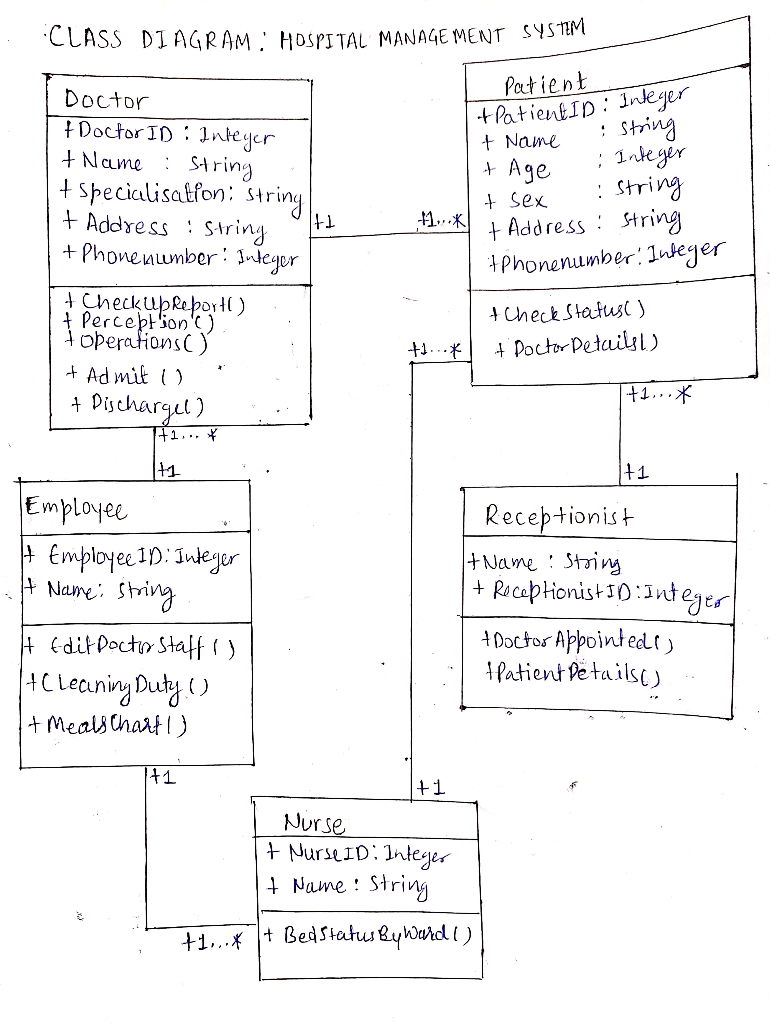 CLASS DIAGRAM: HOSPITAL MANAGEMENT SYSTEM
Doctor
+DoctorID : Integer
+Name : String
+Specialisation: String
+Address : String
+Phonenumber: Integer
+CheckUpReport()
+Perception()
+Operations()
+Admit ()
+Discharge()
+1
+1...*
Patient
+PatientID: Integer
+Name : String
+Age : Integer
+Sex : String
+Address : String
+Phonenumber: Integer
+CheckStatus()
+DoctorDetails()
+1...*
+1...*
+1...*
+1
+1
Employee
+ EmployeeID: Integer
+ Name: String
+ EditDoctorStaff ()
+CleaningDuty ()
+MealsChart()
Receptionist
+Name : String
+ ReceptionistID: Integer
+DoctorAppointed()
+PatientDetails()
+1
+1
Nurse
+ NurseID: Integer
+ Name : String
+ BedStatusByWard()
+1...*